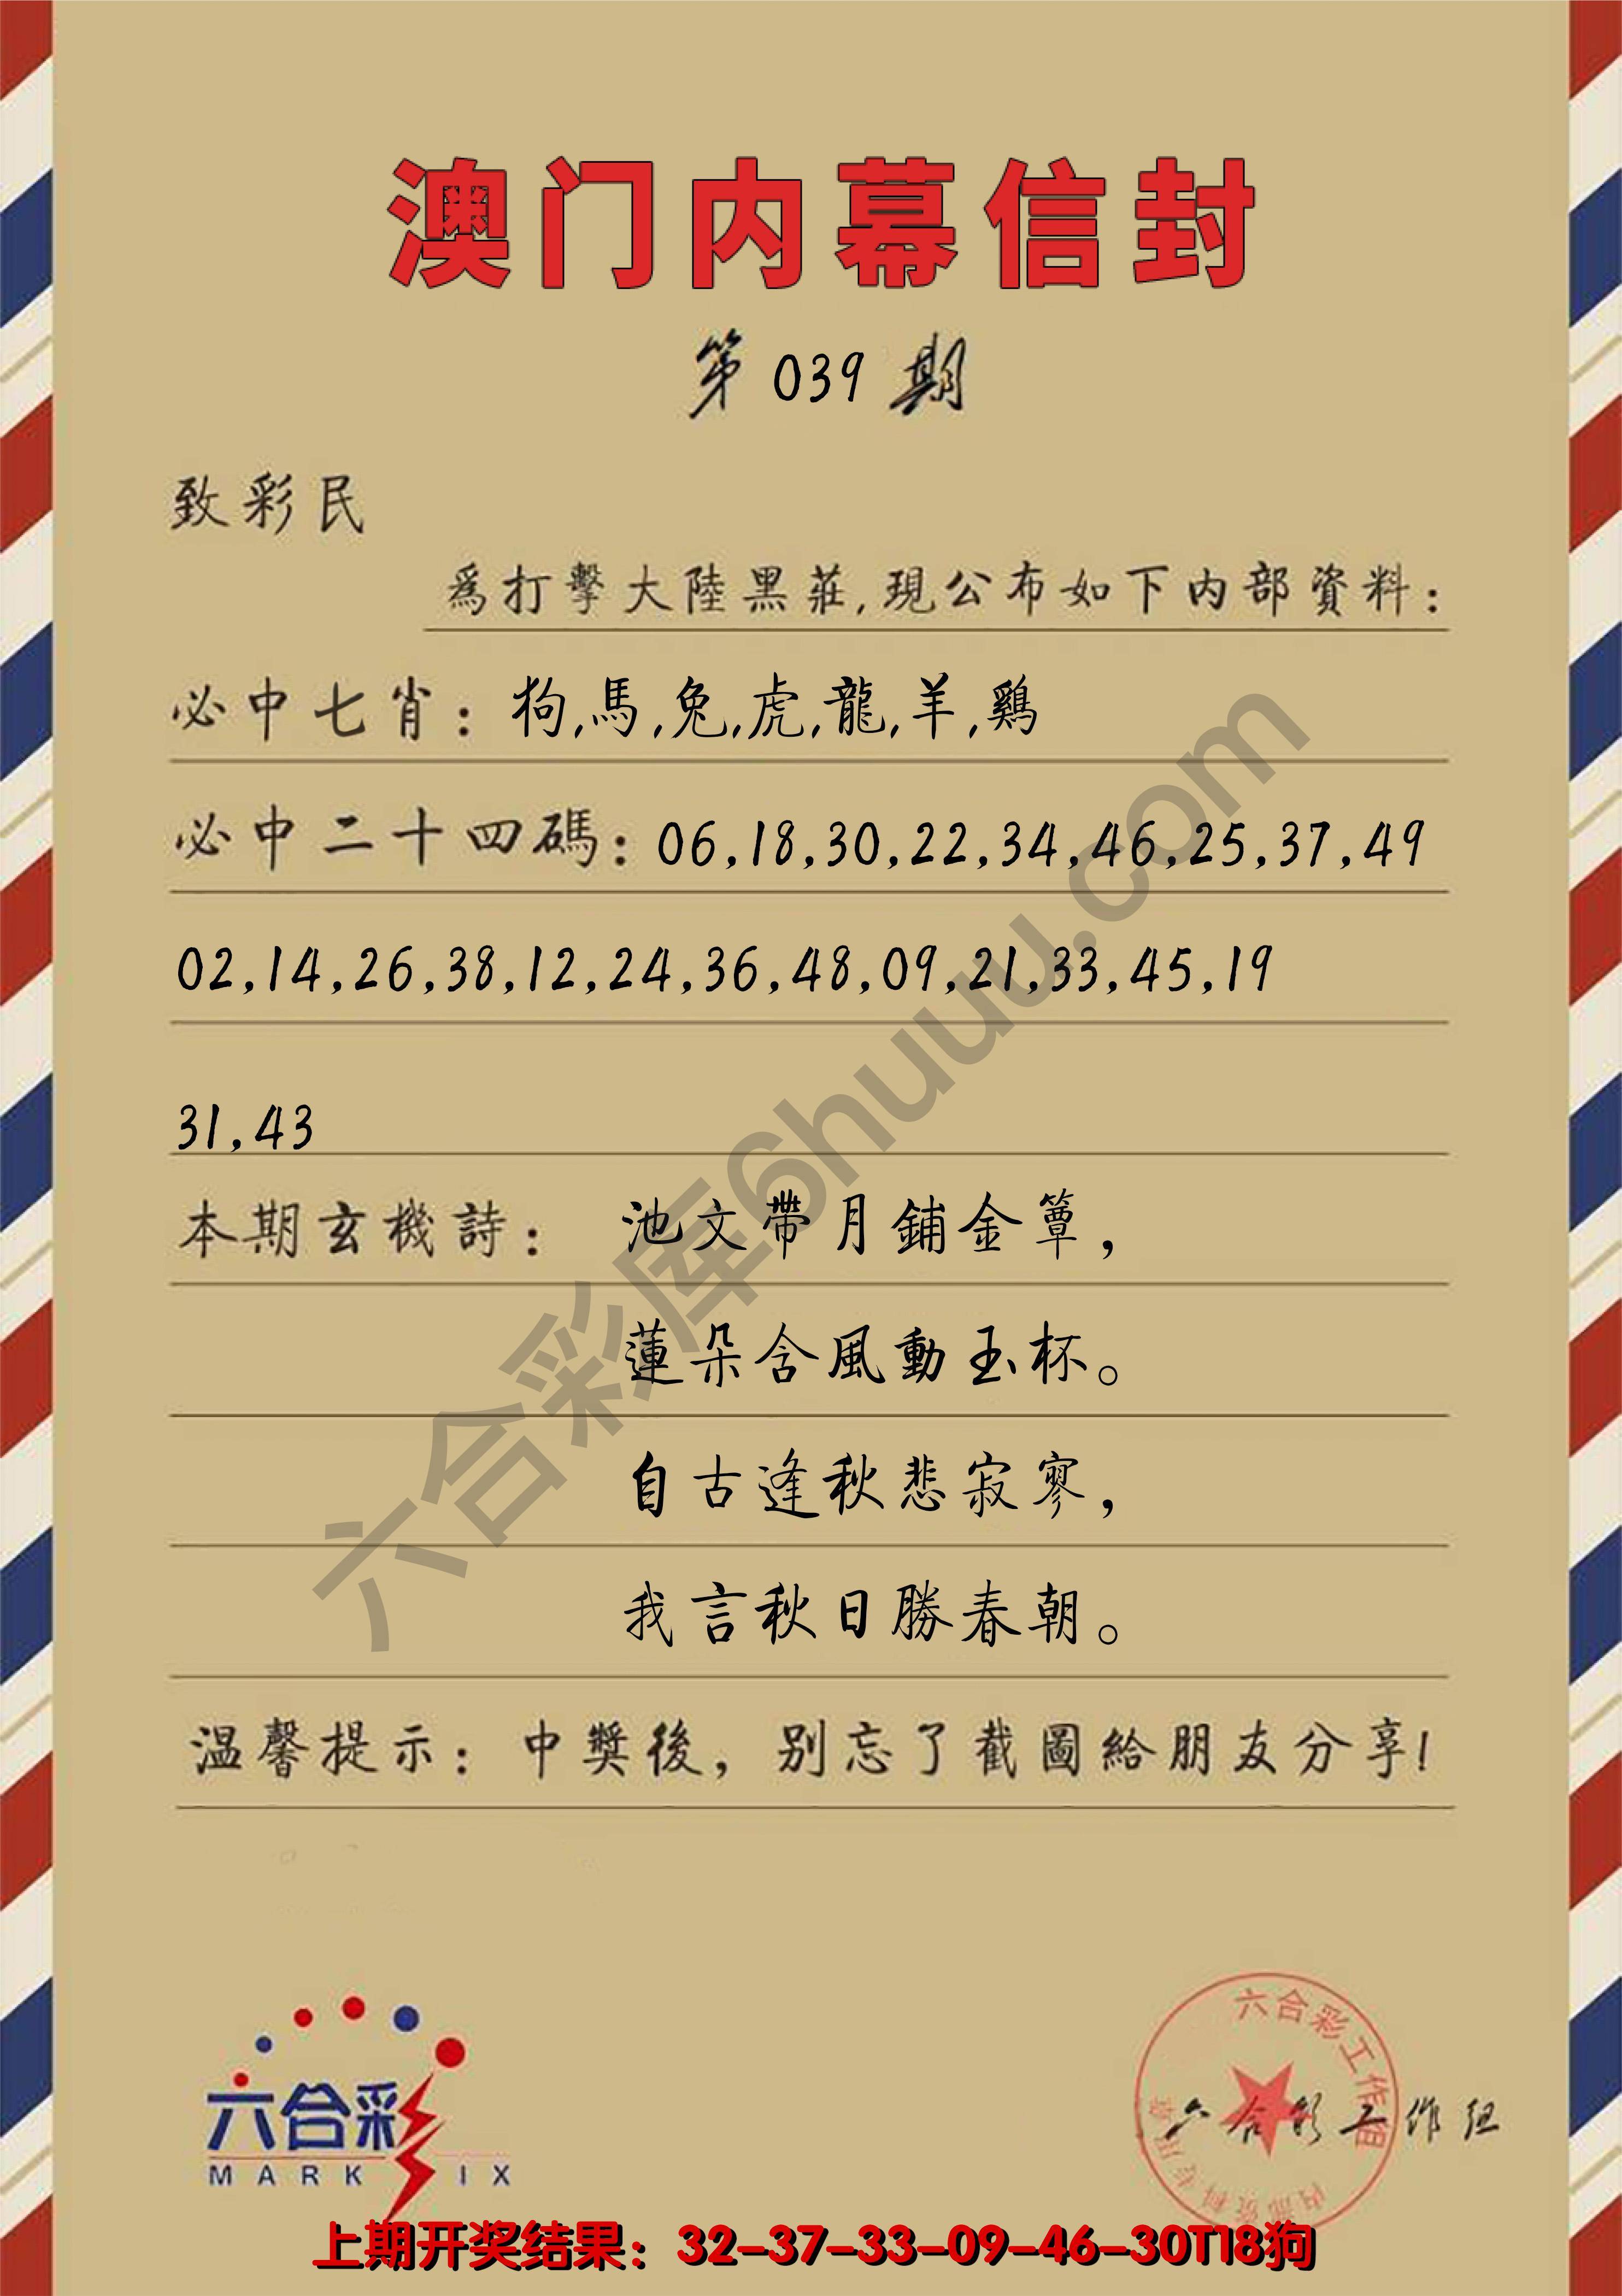 澳门内幕信封
第 039 期
致彩民
爲打擊大陸黑莊,現公布如下内部資料:
必中七肖: 狗,馬,兔,虎,龍,羊,鷄
必中二十四碼: 06,18,30,22,34,46,25,37,49
02,14,26,38,12,24,36,48,09,21,33,45,19
31,43
本期玄機詩: 池文帶月鋪金簟,
蓮朵含風動玉杯。
自古逢秋悲寂寥,
我言秋日勝春朝。
温馨提示: 中獎後, 别忘了截圖給朋友分享!
六合彩库6huuu.com
六合彩
MARK SIX
六合彩工作组
内部资料专用章
六合彩工作组
上期开奖结果: 32-37-33-09-46-30T18狗